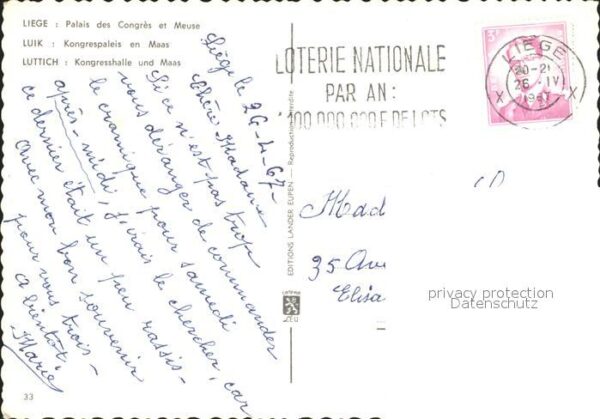 LIEGE : Palais des Congrès et Meuse
LUIK : Kongrespaleis en Maas
LUTTICH : Kongresshalle und Maas
Liège le 26-4-67-
Chère Madame
Si ce n'est pas trop
vous déranger de commander
le cramique pour samedi
après-midi, j'irais le chercher, car
ce dernier était un peu rassis-
avec mon bon souvenir
pour vous trois-
à bientôt,
Marie
33
EDITIONS LANDER EUPEN — Reproduction interdite
LOTERIE NATIONALE
PAR AN:
100.000.000 F DE LOTS
LIEGE
20-21
26 IV
1967
X X
3F
Mad
35 Ave
Elisa
privacy protection
Datenschutz